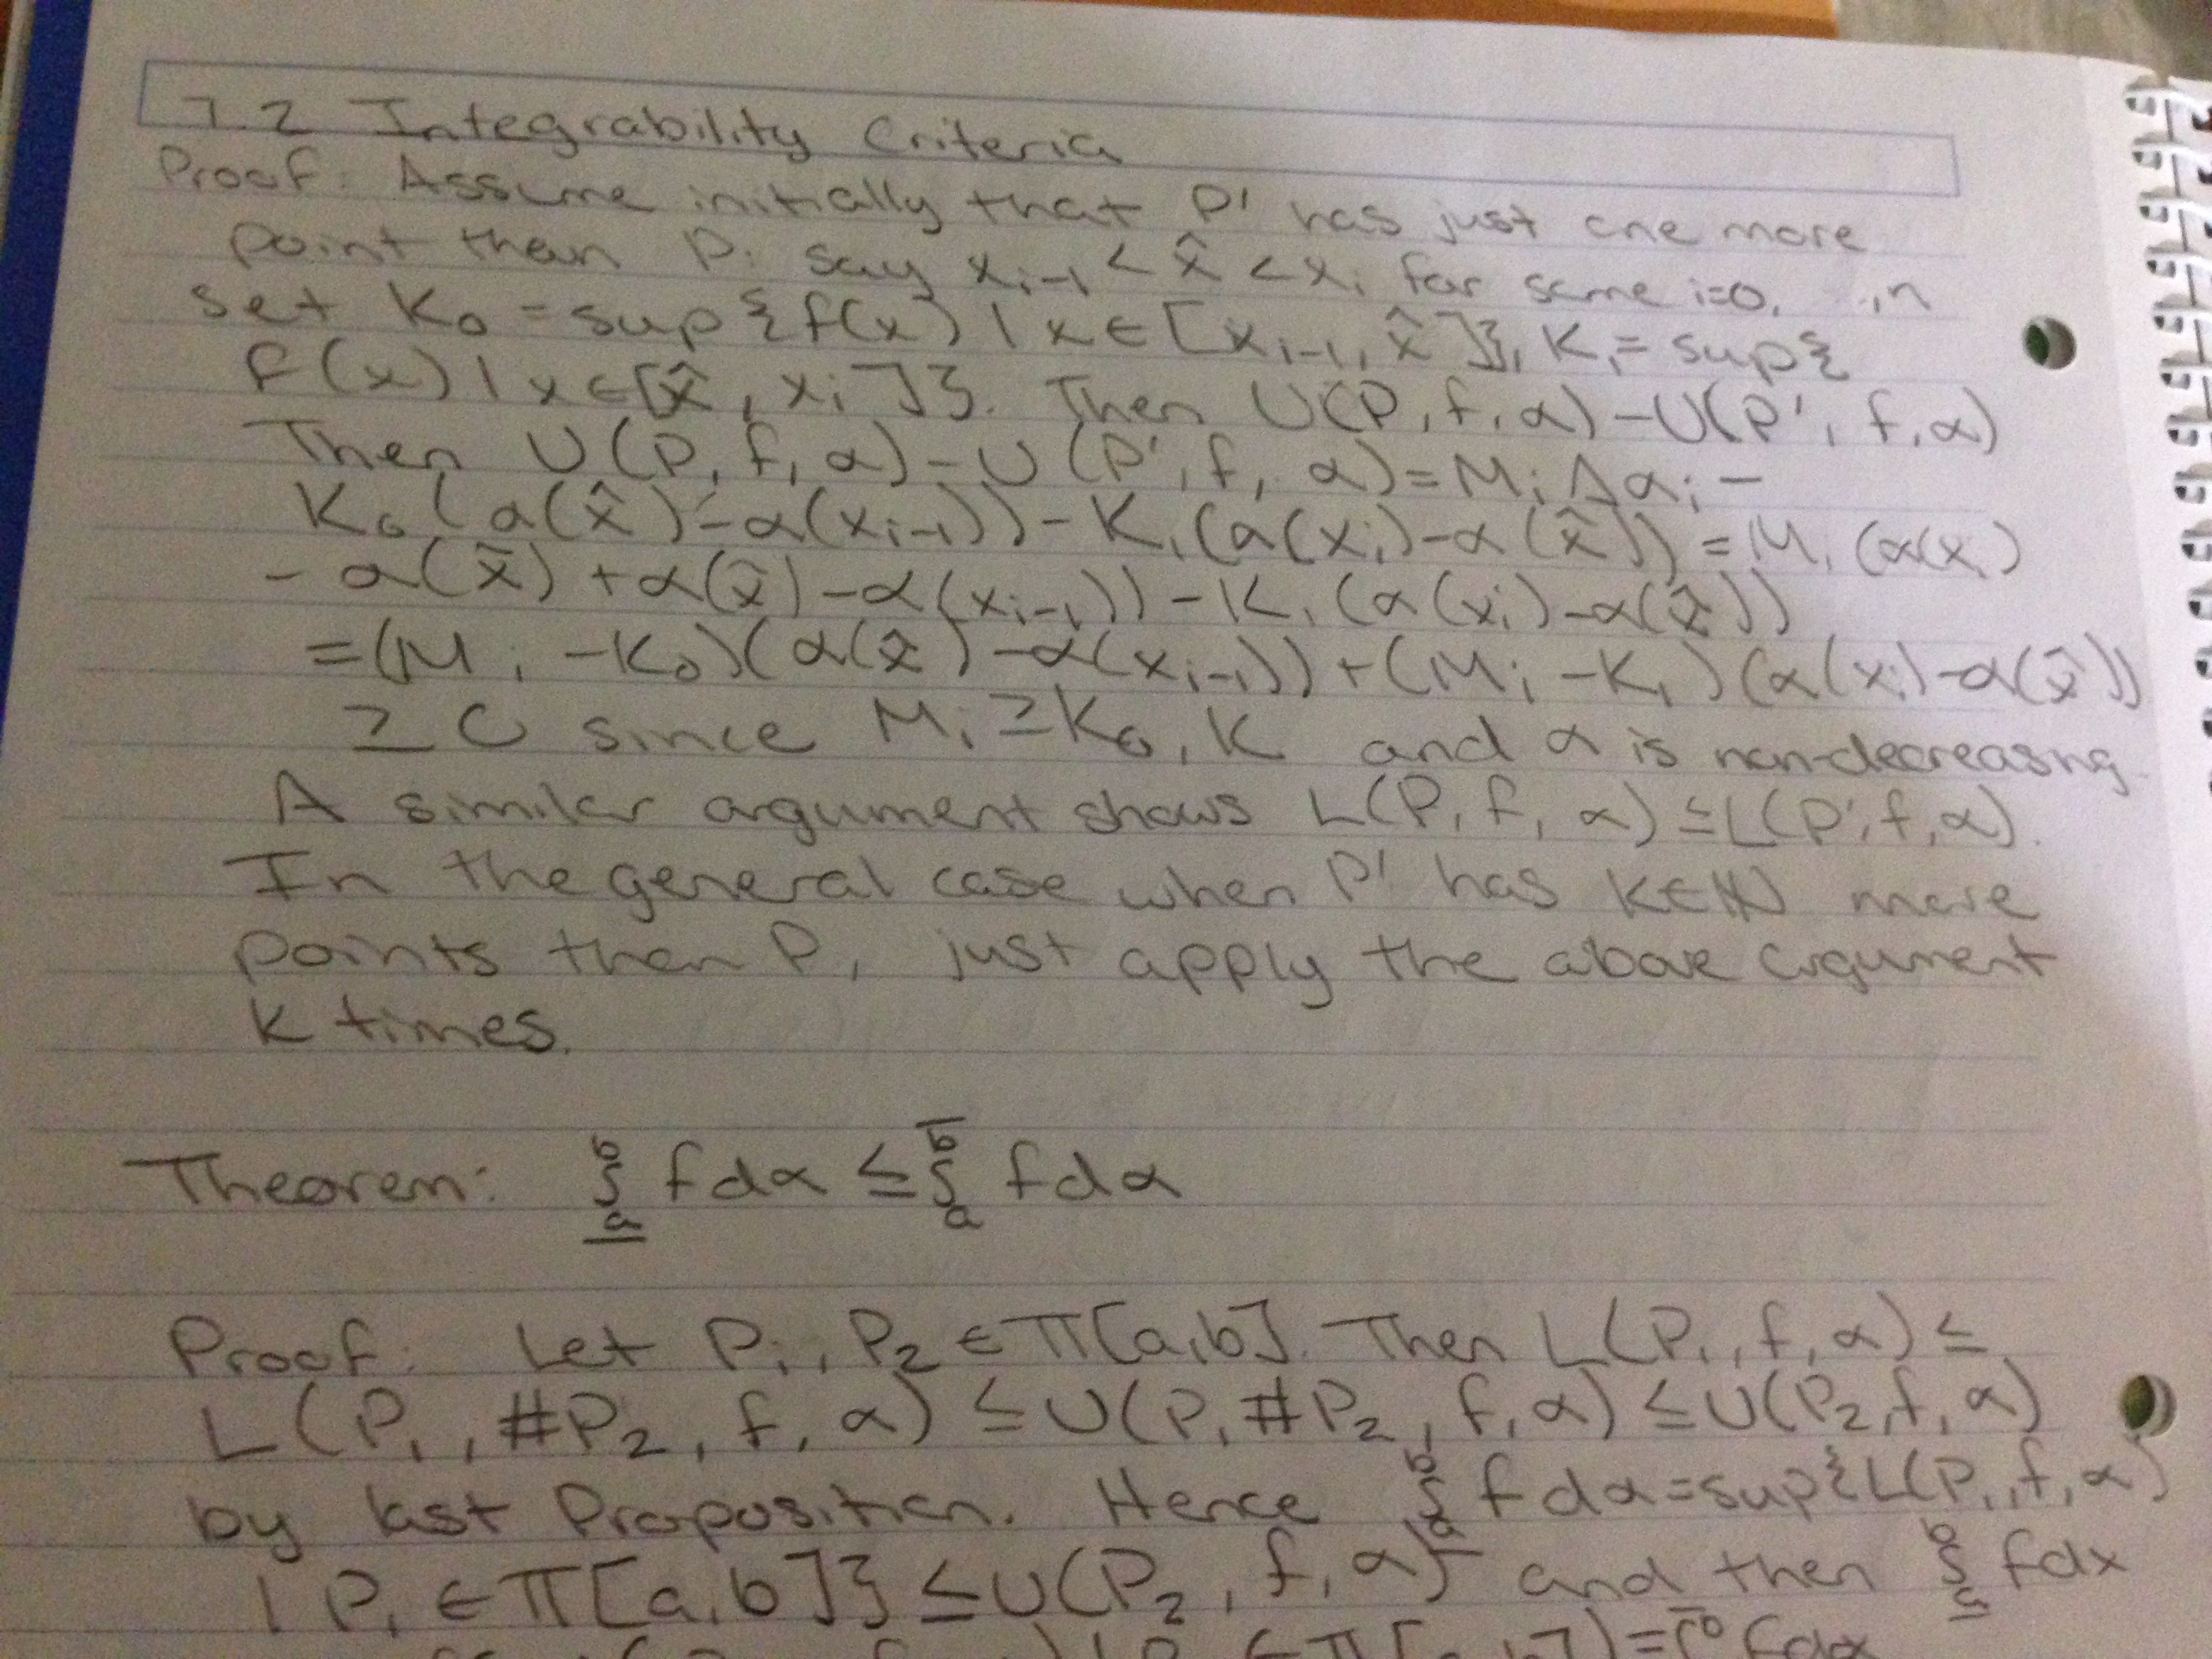 7.2 Integrability Criteria
Proof: Assume initially that P' has just one more
point than P. say xᵢ₋₁ < x̂ < xᵢ for some i=0, ..., n
set K₀ = sup{f(x) | x ∈ [xᵢ₋₁, x̂]}, K₁ = sup{
f(x) | x ∈ [x̂, xᵢ]}. Then U(P, f, α) - U(P', f, α)
Then U(P, f, α) - U(P', f, α) = Mᵢ Δαᵢ -
K₀(α(x̂) - α(xᵢ₋₁)) - K₁(α(xᵢ) - α(x̂)) = Mᵢ (α(xᵢ)
- α(x̂) + α(x̂) - α(xᵢ₋₁)) - K₁(α(xᵢ) - α(x̂))
= (Mᵢ - K₀)(α(x̂) - α(xᵢ₋₁)) + (Mᵢ - K₁)(α(xᵢ) - α(x̂))
≥ 0 since Mᵢ ≥ K₀, K and α is non-decreasing.
A similar argument shows L(P, f, α) ≤ L(P', f, α).
In the general case when P' has K∈ℕ more
points then P, just apply the above argument
K times.
Theorem: ∫_a^b f dα ≤ ∫_a^b̅ f dα
Proof: Let P₁, P₂ ∈ π[a,b]. Then L(P₁, f, α) ≤
L(P₁, #P₂, f, α) ≤ U(P₁#P₂, f, α) ≤ U(P₂, f, α)
by last Proposition. Hence ∫_a^b f dα = sup{L(P₁, f, α)
| P₁ ∈ π[a,b]} ≤ U(P₂, f, α) and then ∫_a^b f dx